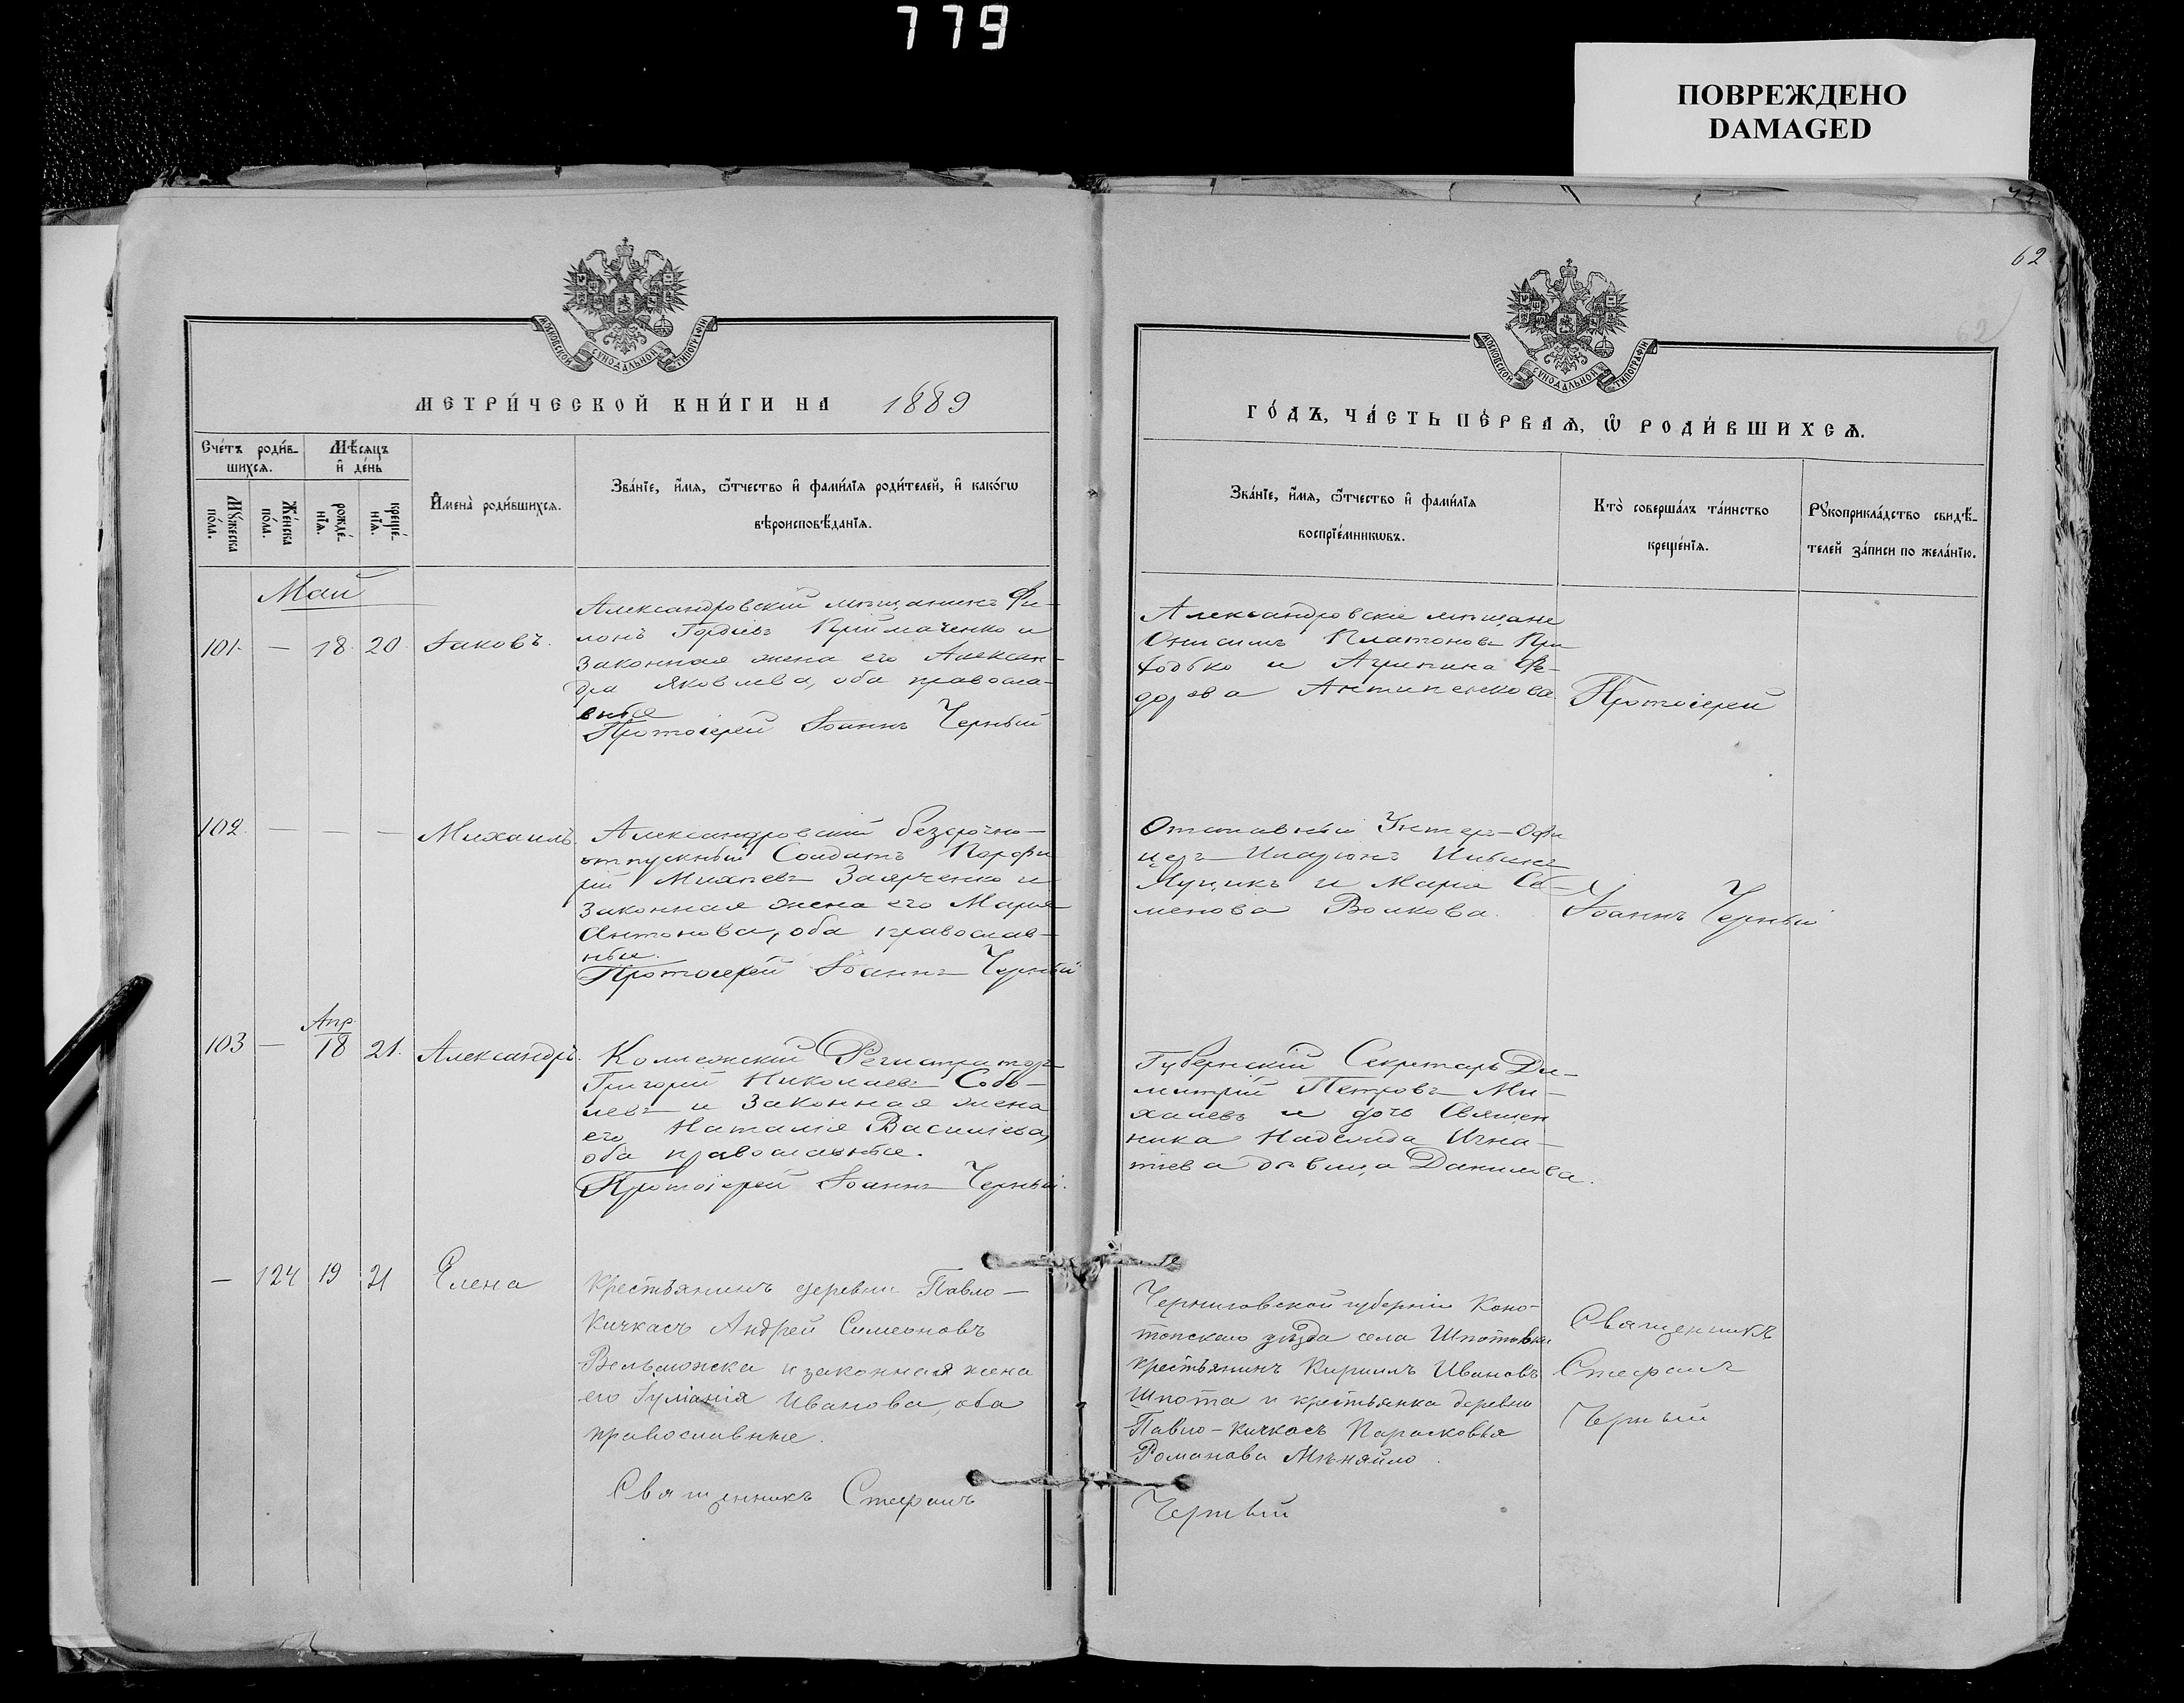 779
ПОВРЕЖДЕНО
DAMAGED
62
62
МОСКОВСКОЙ СѴНОДАЛЬНОЙ ТИПОГРАФІИ
МЕТРИ́ЧЕСКОЙ КНИ́ГИ НА 1889
Сче́тъ роди́в-
шихсѧ.
Мѣ́сѧцъ
и҆ де́нь
Мꙋ́жеска
по́ла.
Же́нска
по́ла.
рожде́-
нїѧ.
креще́-
нїѧ.
И҆мена̀ роди́вшихсѧ.
Зва́нїе, и҆́мѧ, ѻ҆́тчество и҆ фами́лїѧ роди́телей, и҆ како́гѡ
вѣроисповѣ́данїѧ.
Май
101. — 18. 20. Іаковъ.
Александровскій мѣщанинъ Фи-
лонъ Гордіевъ Приймаченко и
законная жена его Алексан-
дра Яковлева, оба правосла-
вные
Протоіерей Іоаннъ Черный
102. — — — Михаилъ.
Александровскій безсрочно-
отпускный Солдатъ Порфи
рій Михеевъ Заярченко и
законная жена его Марія
Антонова, оба православ-
ные.
Протоіерей Іоаннъ Черный
103 — Апр. 18 21. Александръ.
Коллежскій Регистраторъ
Григорій Николаевъ Собо-
левъ и законная жена
его Наталія Василіева,
оба православные.
Протоіерей Іоаннъ Черный.
— 124 19 21 Елена
Крестьянинъ деревни Павло-
Кичкасъ Андрей Симеоновъ
и законная жена
его Іуліанія Иванова, оба
православные.
Священникъ Стефанъ
МОСКОВСКОЙ СѴНОДАЛЬНОЙ ТИПОГРАФІИ
ГО́ДЪ, ЧА́СТЬ ПЕ́РВАѦ, Ѡ҆ РОДИ́ВШИХСѦ.
Зва́нїе, и҆́мѧ, ѻ҆́тчество и҆ фами́лїѧ
воспрїе́мникѡвъ.
Кто̀ соверша́лъ та́инство
креще́нїѧ.
Рꙋкоприкла́дство свидѣ́-
телей за́писи по жела́нїю.
Александровскіе мѣщане
Онисимъ Платоновъ При
ходько и Агрипина Фе-
дорова Антипенкова
Протоіерей
Отставный Унтеръ-Офи
церъ Иларіонъ
Луцикъ и Марія Се-
менова Волкова.
Іоаннъ Черный
Губернскій Секретарь Ди-
митрій Петровъ Ми-
халевъ и дочь Священ
ника Надежда Игна-
тіева дѣвица Данилова.
Черниговской губерніи Коно-
топскаго уѣзда села Шпотовки
крестьянинъ Кириллъ Ивановъ
Шпота и крестьянка деревни
Павло-Кичкасъ Парасковья
Романова Мѣняйло.
Священникъ
Стефанъ
Черный
Черный